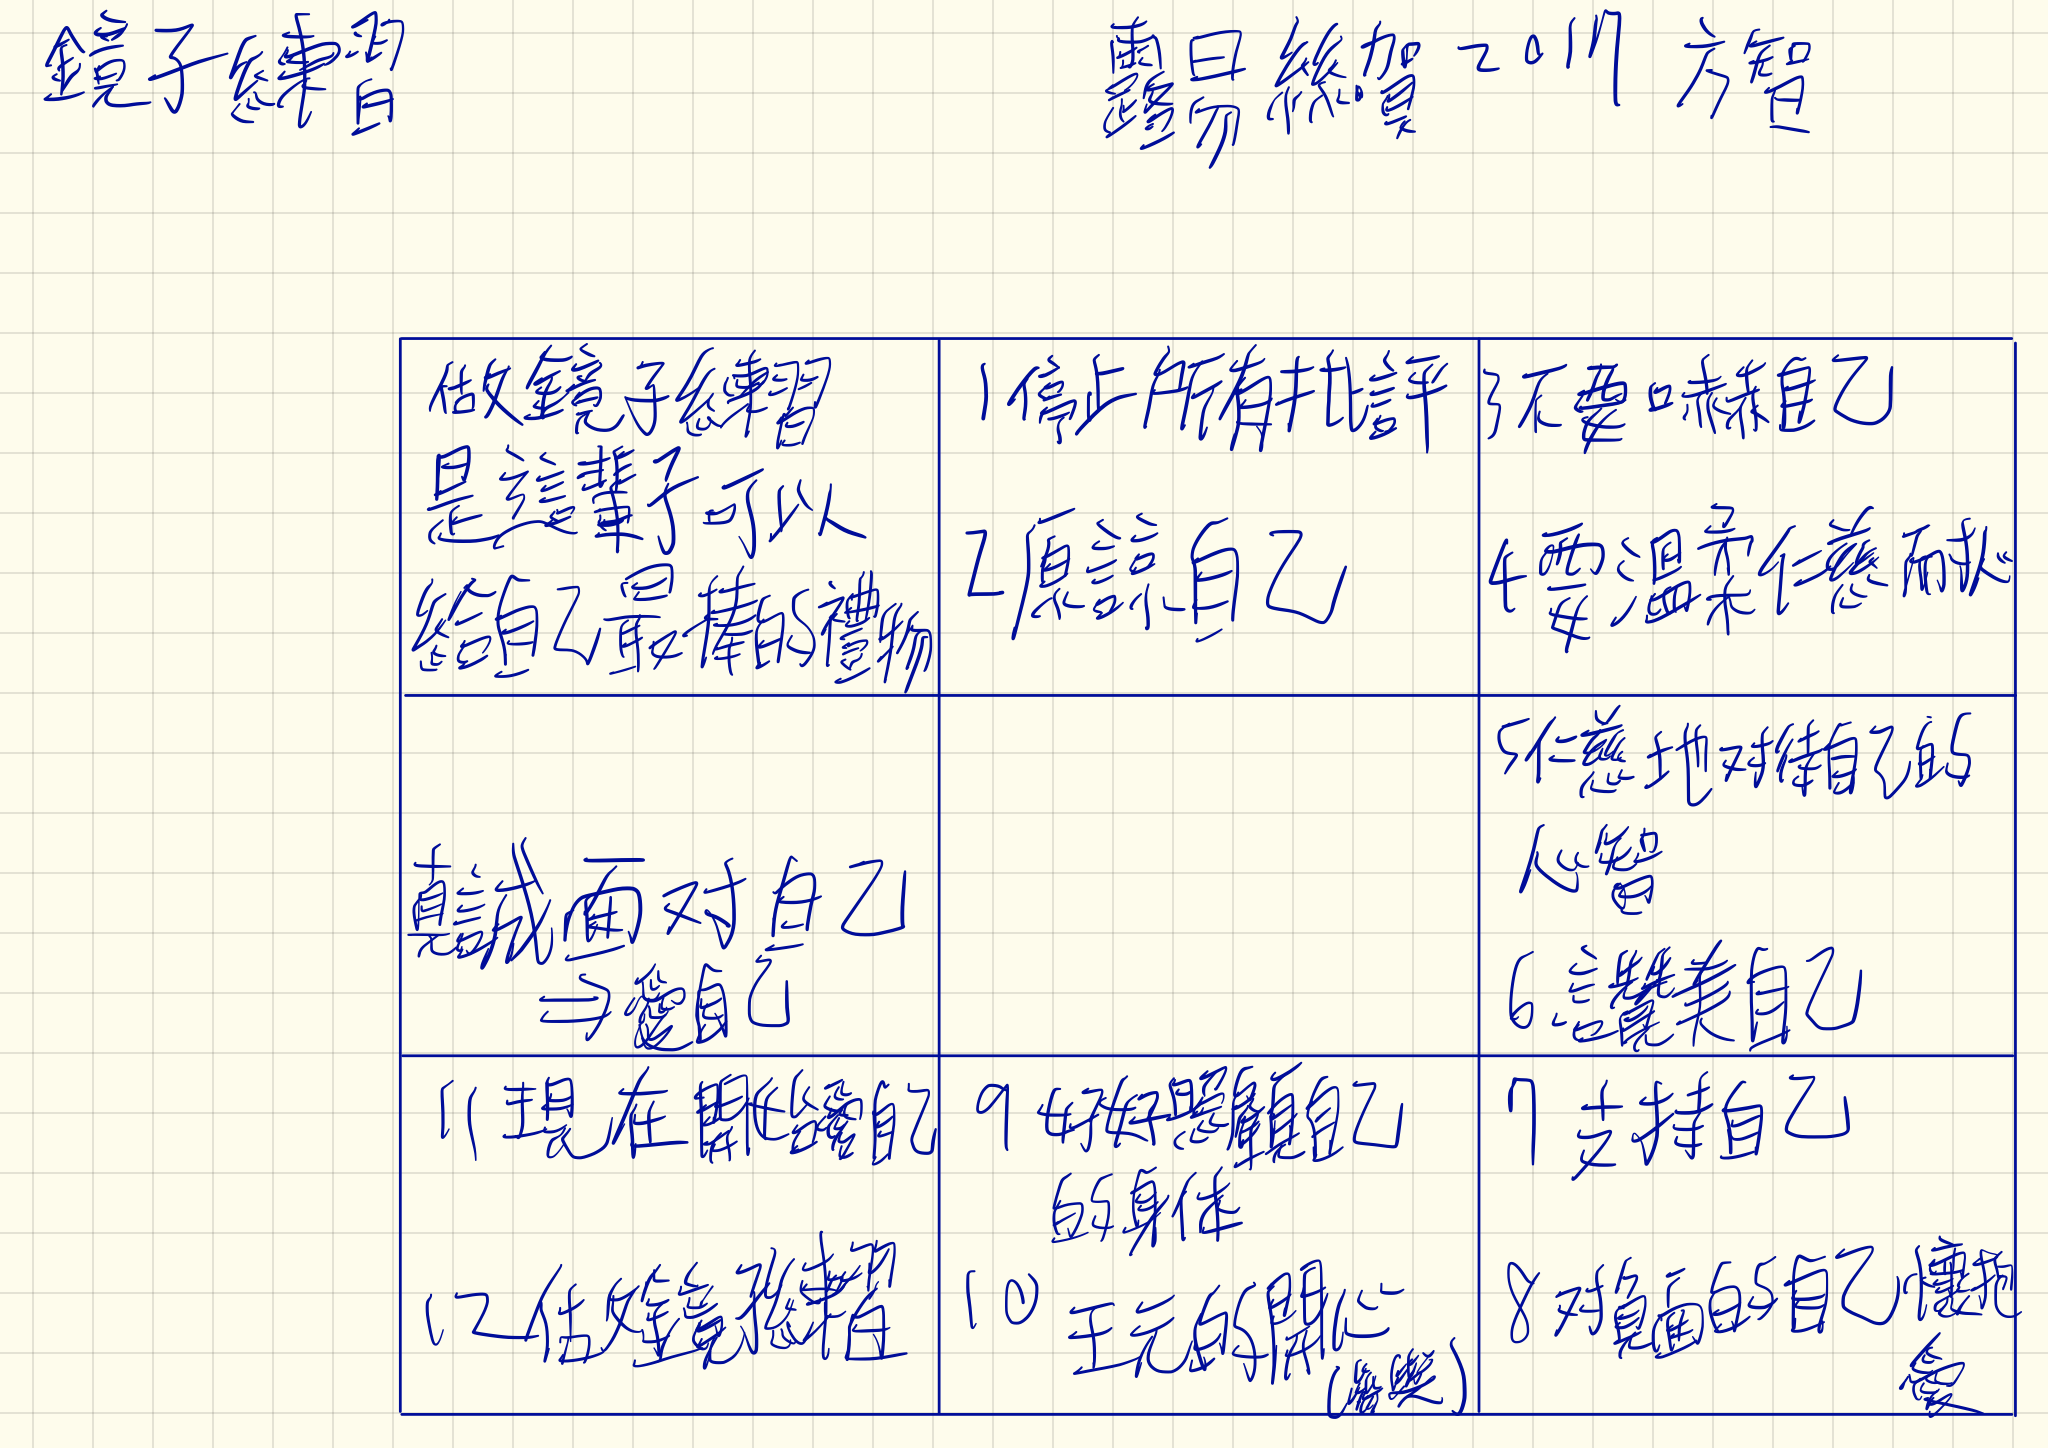 鏡子練習
露易絲賀 2017 方智
做鏡子練習
是這輩子可以
給自己最棒的禮物
1 停止所有批評
2 原諒自己
3 不要嚇自己
4 要溫柔仁慈而
真誠面对自己
⇒愛自己
5 仁慈地对待自己的
心智
6 讚美自己
11 現在開始愛自己
12 做鏡子練習
9 好好照顧自己
的身体
10 的開心
7 支持自己
8 对負面的自己懷抱
愛